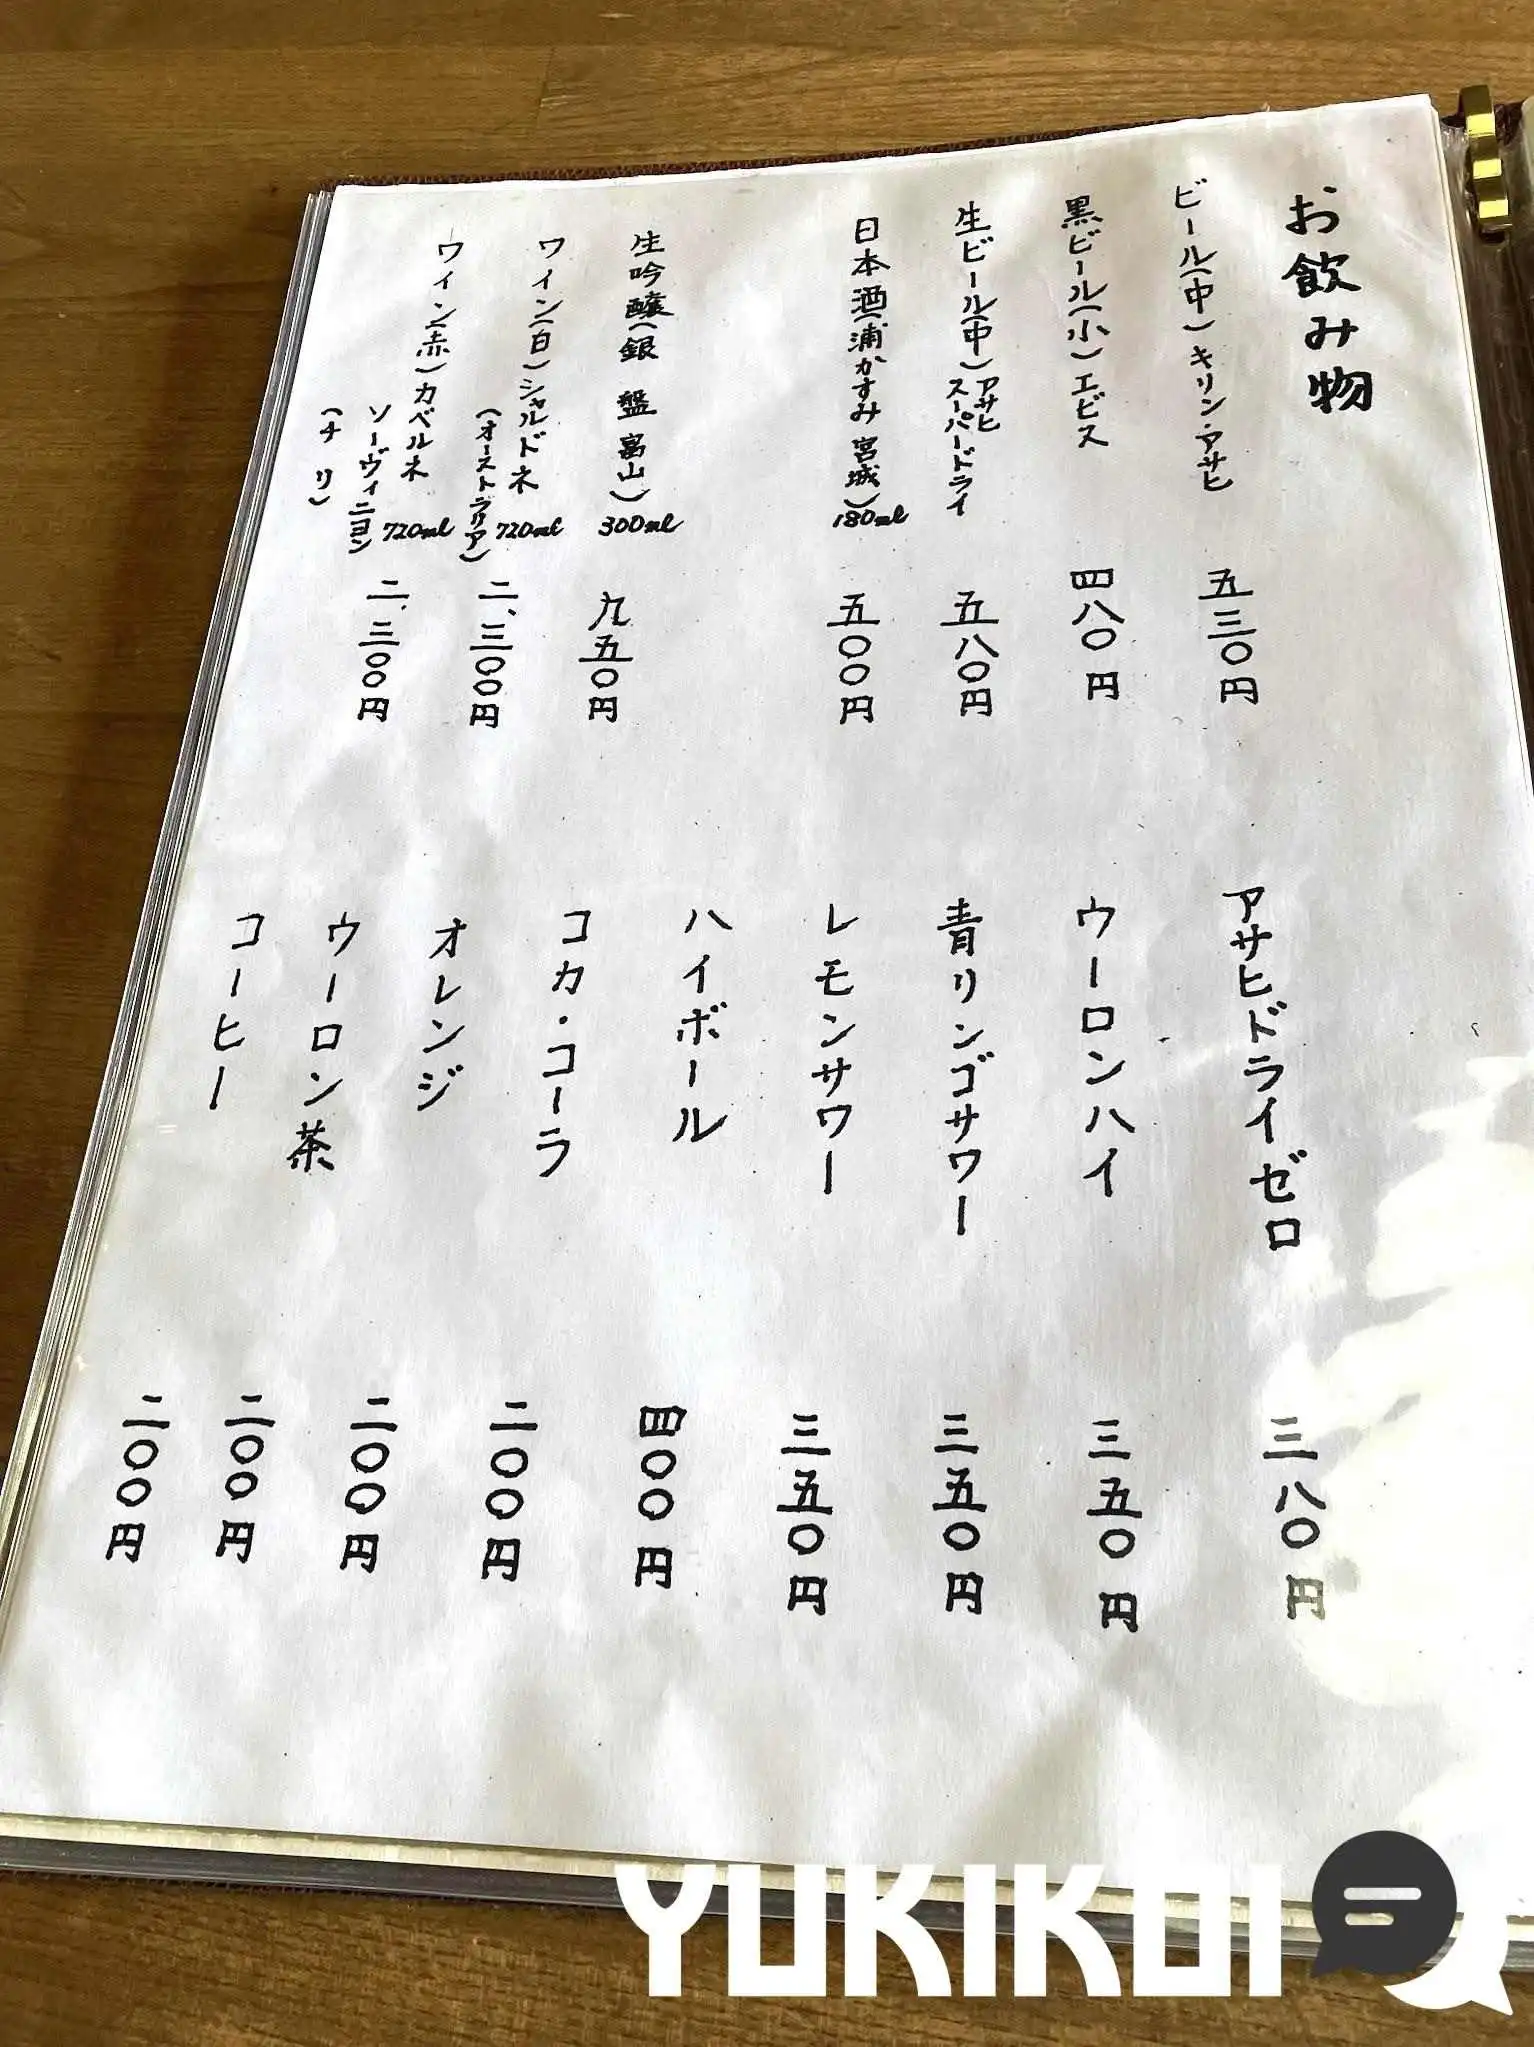 お飲み物
ビール(中)キリン・アサヒ 五三〇円
黒ビール(小)エビス 四八〇円
生ビール(中)アサヒスーパードライ 五八〇円
日本酒(浦かすみ 宮城)180ml 五〇〇円
生吟醸(銀盤 富山)300ml 九五〇円
ワイン(白)シャルドネ 720ml 二、三〇〇円
(オーストラリア)
ワイン(赤)カベルネ 720ml 二、三〇〇円
ソーヴィニヨン
(チリ)
アサヒドライゼロ 三八〇円
ウーロンハイ 三五〇円
青リンゴサワー 三五〇円
レモンサワー 三五〇円
ハイボール 四〇〇円
コカ・コーラ 二〇〇円
オレンジ 二〇〇円
ウーロン茶 二〇〇円
コーヒー 二〇〇円
YUKIKOI